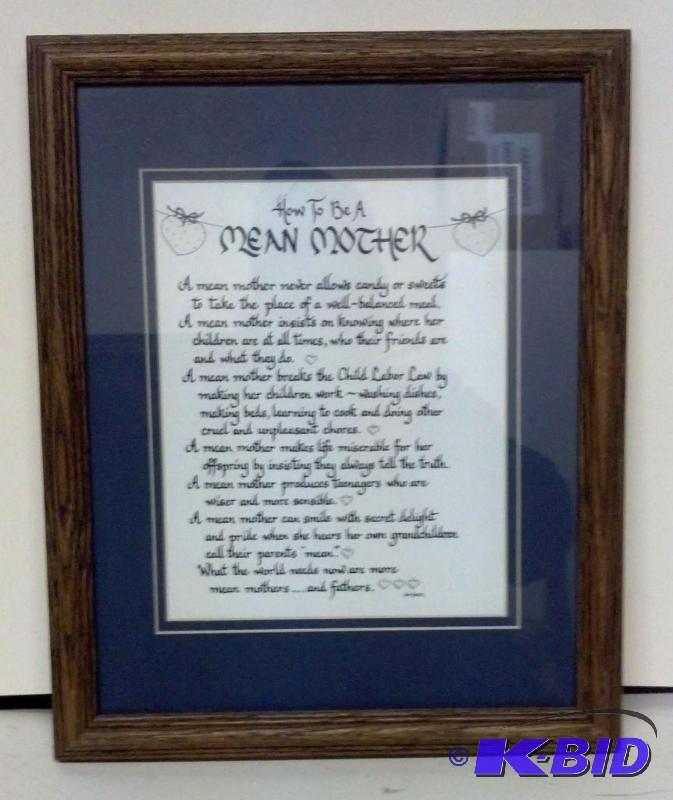 How To Be A
MEAN MOTHER
A mean mother never allows candy or sweets
to take the place of a well-balanced meal.
A mean mother insists on knowing where her
children are at all times, who their friends are
and what they do.
A mean mother breaks the Child Labor Law by
making her children work ~ washing dishes,
making beds, learning to cook and doing other
cruel and unpleasant chores.
A mean mother makes life miserable for her
offspring by insisting they always tell the truth.
A mean mother produces teenagers who are
wiser and more sensible.
A mean mother can smile with secret delight
and pride when she hears her own grandchildren
call their parents "mean."
What the world needs now are more
mean mothers....and fathers.
© K-BID